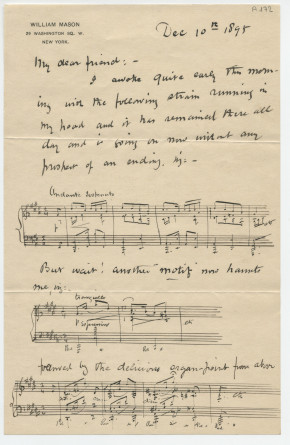 WILLIAM MASON
WASHINGTON SQ. W.
NEW YORK.
Dec 10th 1895
My dear friend:-
I awoke quite early this morn-
ing with the following strain running in
my head and it has remained there all
day and is going on now without any
prospect of an ending,
Andante
But wait! another motif now haunts
me,
tranquillo
Ped
etc
followed by the delicious organ-point from